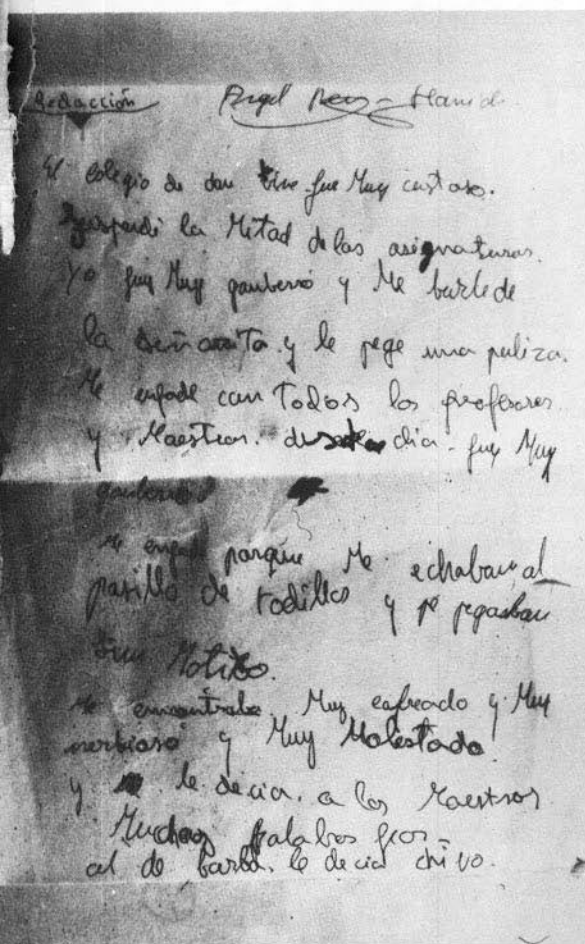 Redacción
El colegio de don fue Muy castoso.
suspendi la Mitad delas asignaturas.
Yo fui Muy gamberro y Me burle de
la señorita y le pege una paliza.
Me enfade con Todos los profesores
y Maestros. dia fui Muy
gamberro
Me enfade porque Me echaban al
pasillo de rodillas y pegaban
Motibo.
Me encontraba Muy cabreado y Muy
nerbioso y Muy Molestado
y le decia a los Maestros
Muchas palabras feas
al de barba le decia chivo.